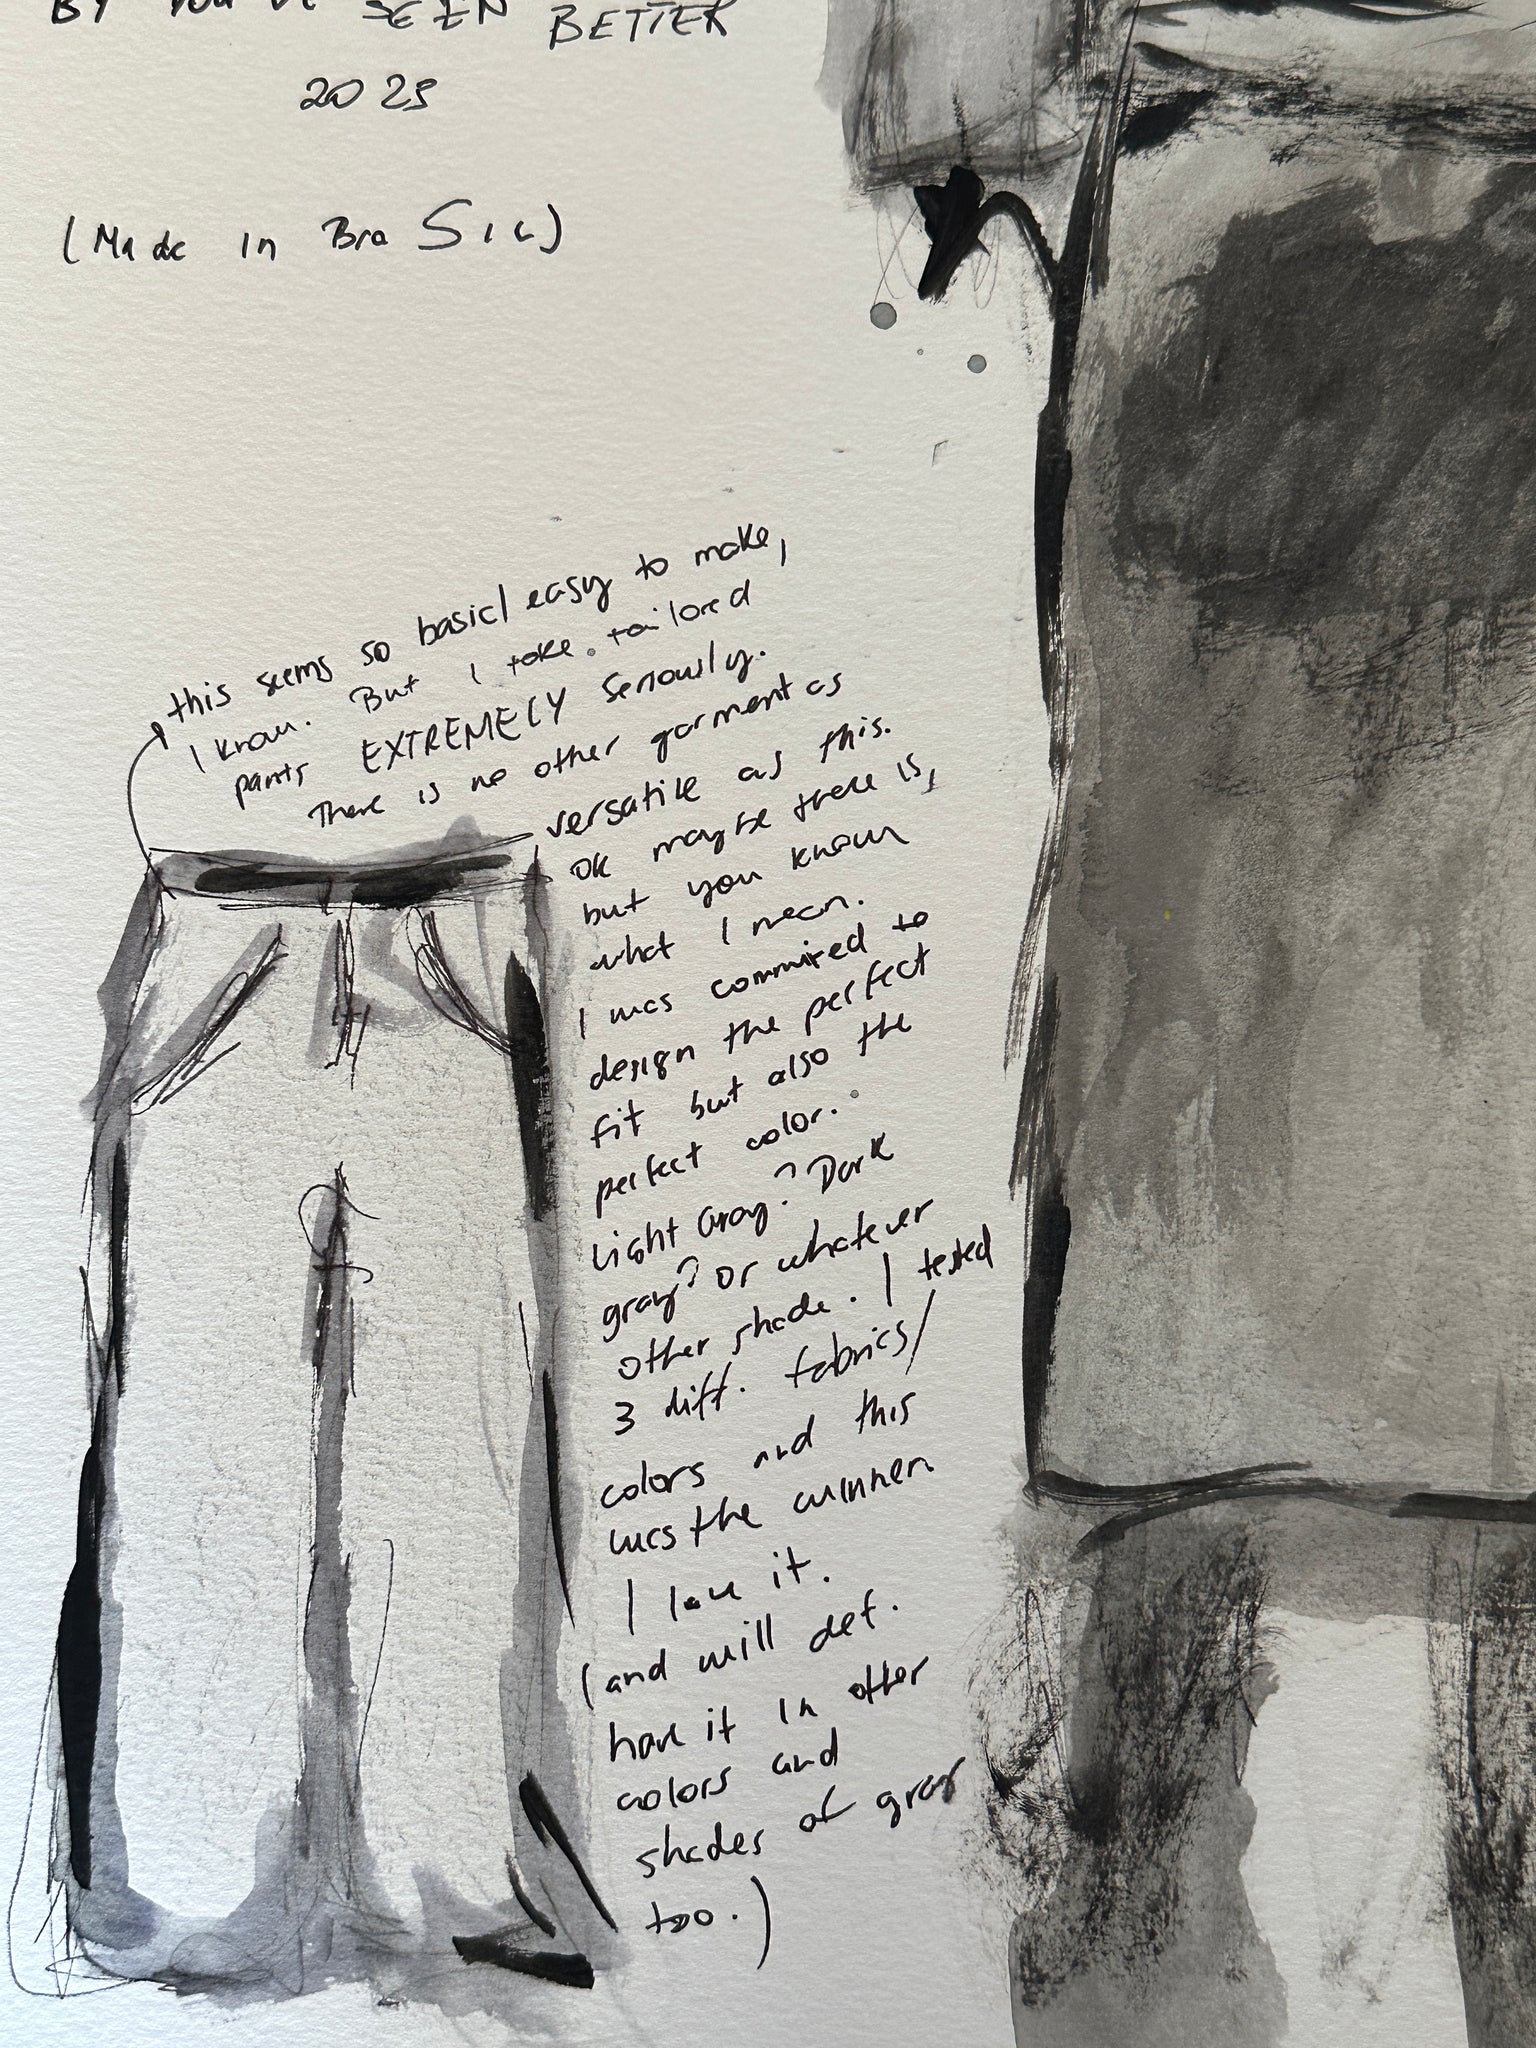 BY YOU'VE SEEN BETTER
2023
(Made in BraSiL)
this seems so basic/easy to make,
I know. But I take tailored
pants EXTREMELY seriously.
There is no other garment as
versatile as this.
OK maybe there is,
but you know
what I mean.
I was commited to
design the perfect
fit but also the
perfect color.
Light Gray? Dark
gray? Or whatever
other shade. I tested
3 diff. fabrics/
colors and this
was the winner.
I love it.
(and will def.
have it in other
colors and
shades of gray
too.)